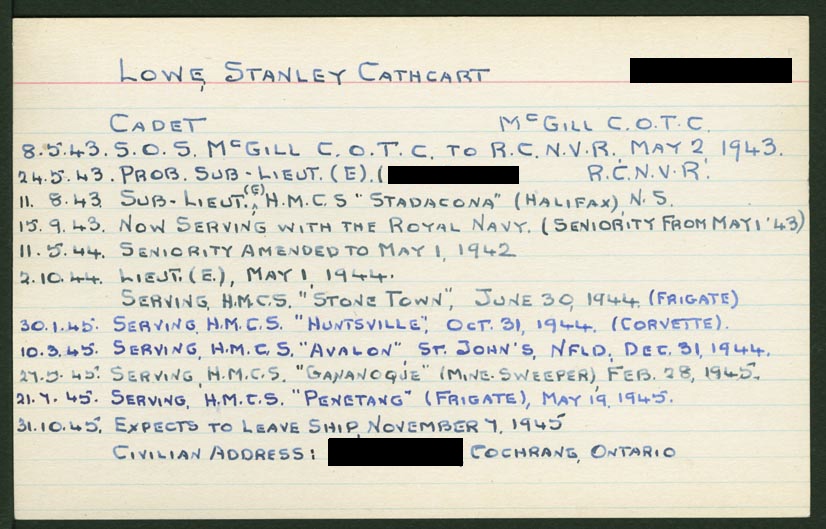 LOWE, STANLEY CATHCART
CADET McGILL C.O.T.C.
8.5.43. S.O.S. McGILL C.O.T.C. TO R.C.N.V.R., MAY 2, 1943.
24.5.43. PROB. SUB-LIEUT. (E). ( R.C.N.V.R.
11.8.43. SUB-LIEUT. (E), H.M.C.S "STADACONA" (HALIFAX), N.S.
15.9.43. NOW SERVING WITH THE ROYAL NAVY. (SENIORITY FROM MAY 1 '43)
11.5.44. SENIORITY AMENDED TO MAY 1, 1942
2.10.44. LIEUT. (E.), MAY 1, 1944.
SERVING, H.M.C.S. "STONE TOWN", JUNE 30, 1944. (FRIGATE)
30.1.45. SERVING, H.M.C.S. "HUNTSVILLE", OCT. 31, 1944. (CORVETTE).
10.3.45. SERVING, H.M.C.S. "AVALON" ST. JOHN'S, NFLD, DEC. 31, 1944.
27.5.45. SERVING, H.M.C.S. "GANANOQUE" (MINE-SWEEPER), FEB. 28, 1945.
21.7.45. SERVING, H.M.C.S. "PENETANG" (FRIGATE), MAY 19, 1945.
31.10.45. EXPECTS TO LEAVE SHIP, NOVEMBER 7, 1945
CIVILIAN ADDRESS: COCHRANE, ONTARIO